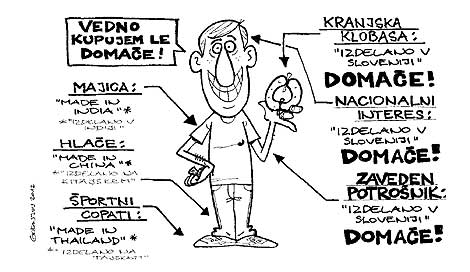 VEDNO
KUPUJEM LE
DOMAČE!
MAJICA:
"MADE IN
INDIA"*
*"IZDELANO V
INDIJI"
HLAČE:
"MADE IN
CHINA"*
*"IZDELANO NA
KITAJSKEM"
ŠPORTNI
COPATI:
"MADE IN
THAILAND"*
*"IZDELANO NA
TAJSKEM"
KRANJSKA
KLOBASA:
"IZDELANO V
SLOVENIJI"
DOMAČE!
NACIONALNI
INTERES:
"IZDELANO V
SLOVENIJI"
DOMAČE!
ZAVEDEN
POTROŠNIK:
"IZDELANO V
SLOVENIJI"
DOMAČE!